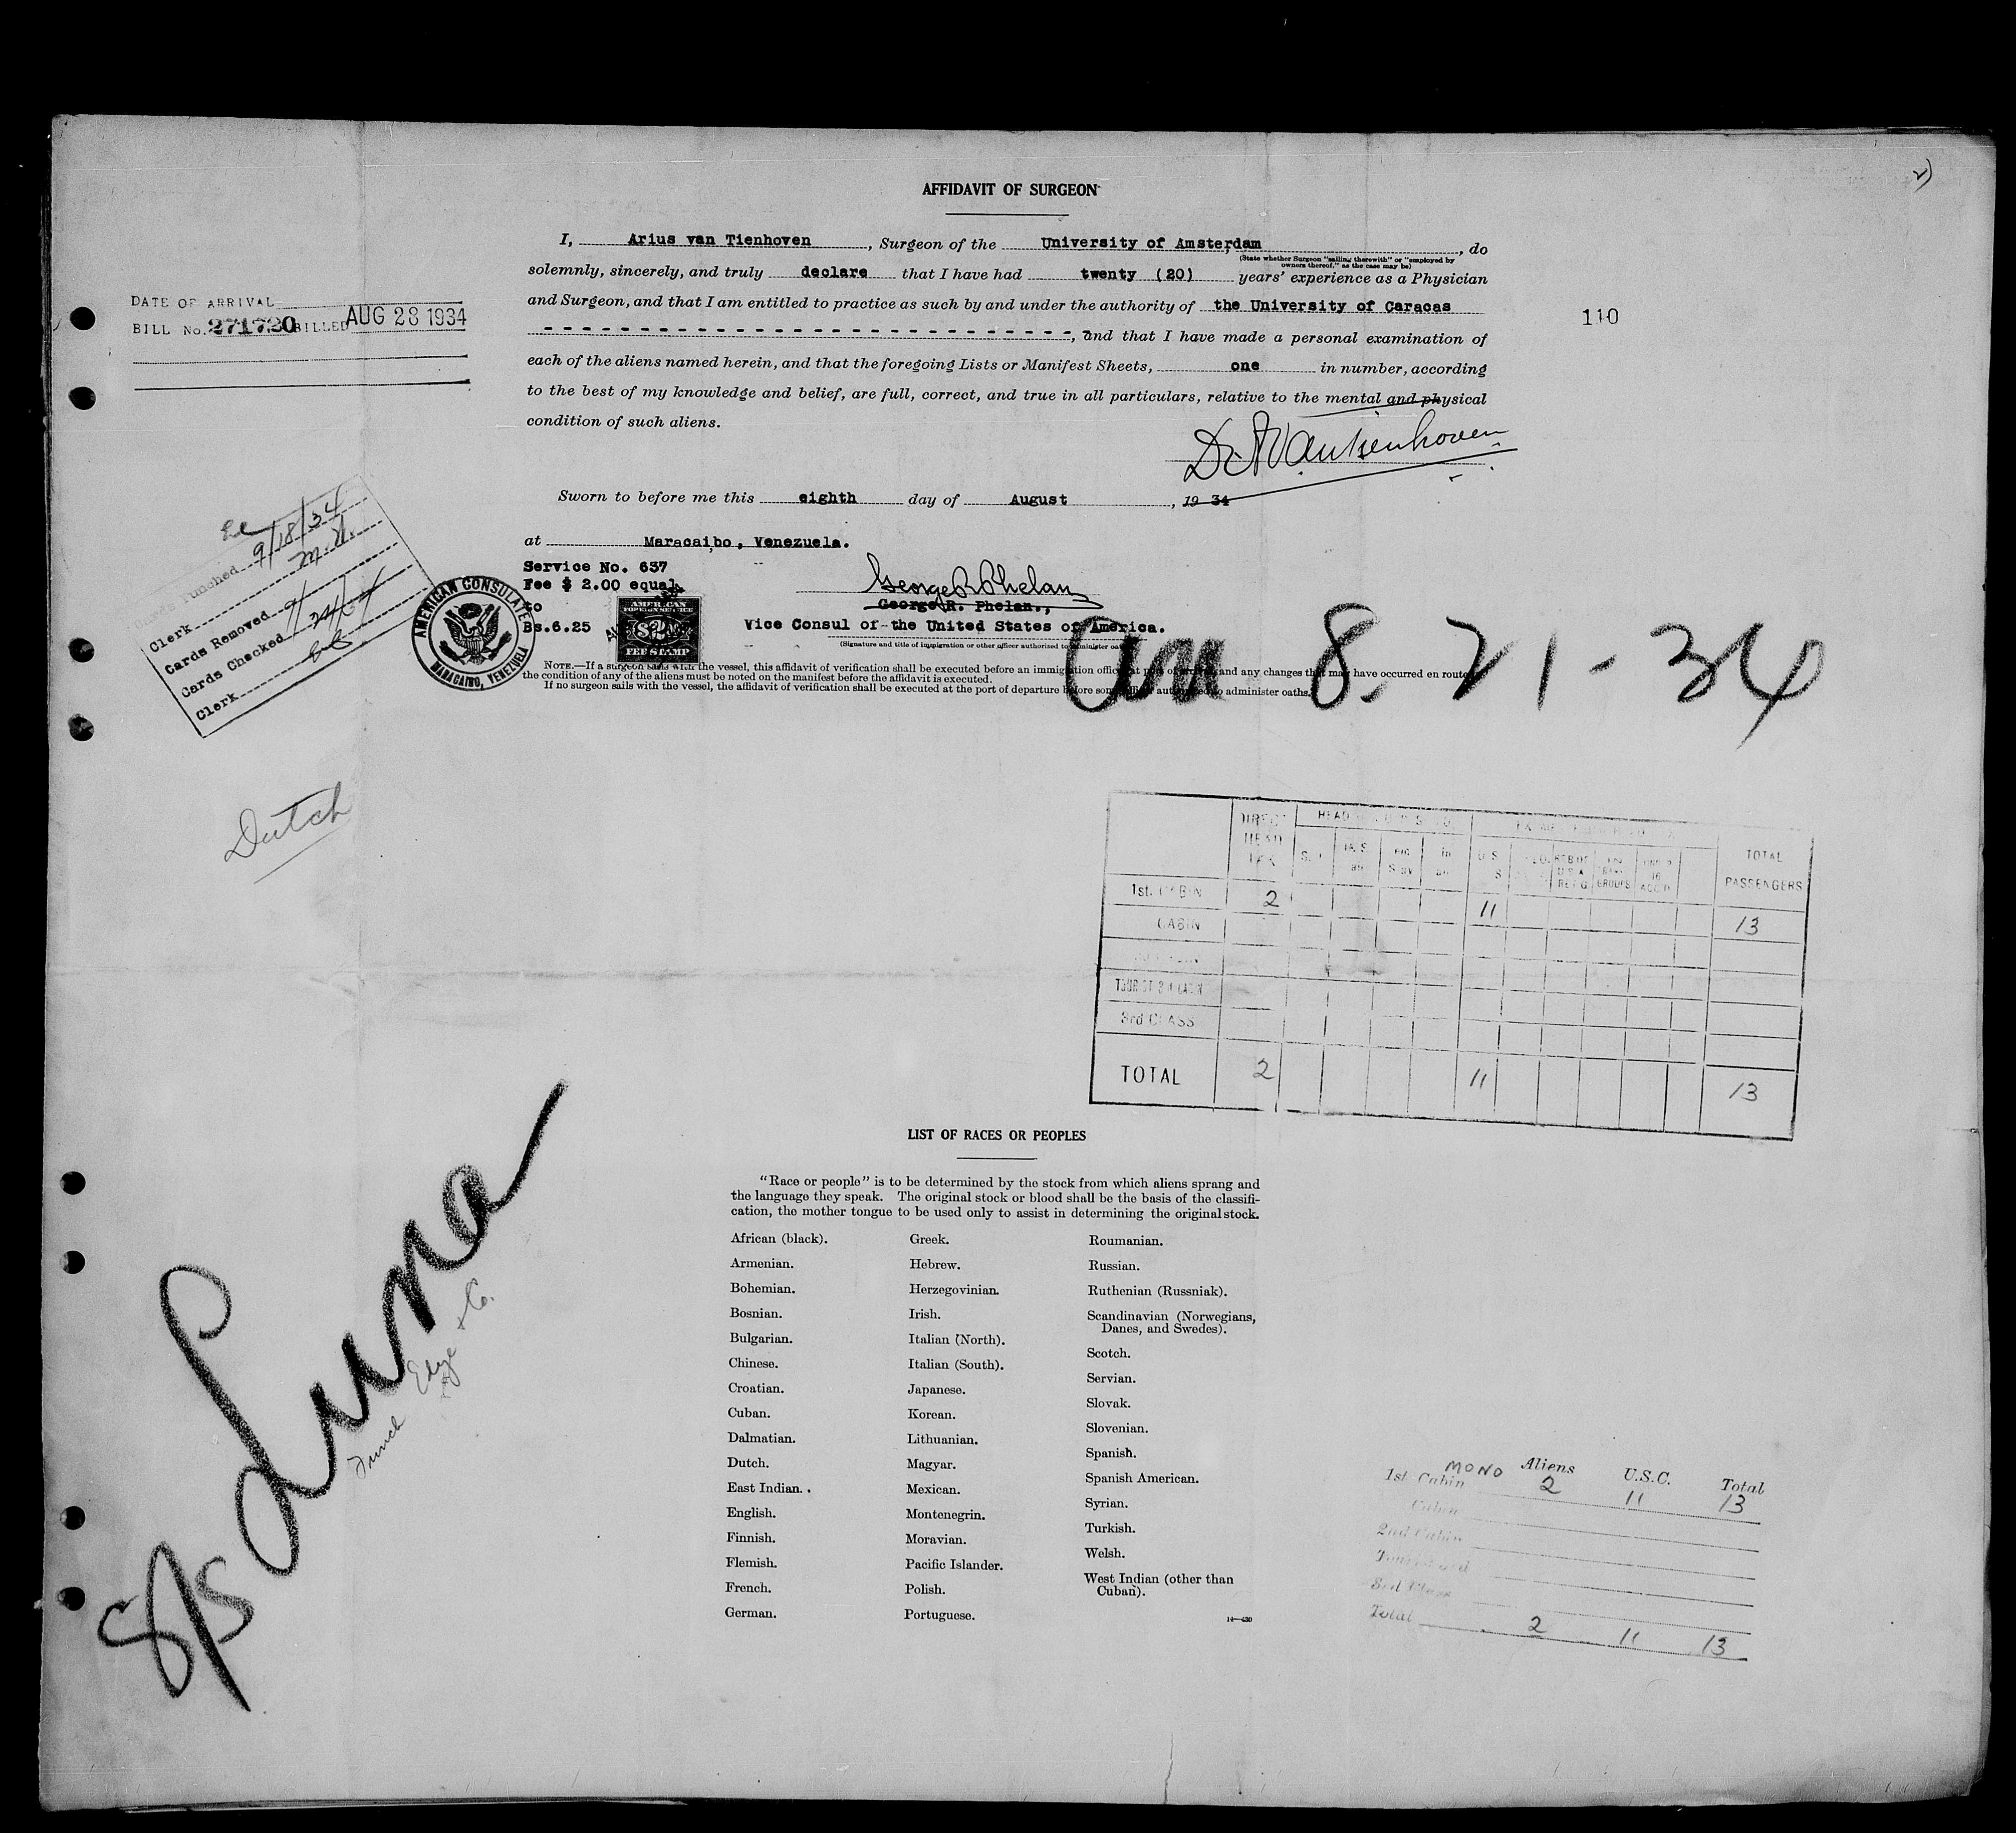 AFFIDAVIT OF SURGEON
I, Arius van Tienhoven, Surgeon of the University of Amsterdam, do
(State whether Surgeon "sailing therewith" or "employed by
owners thereof," as the case may be)
solemnly, sincerely, and truly declare that I have had twenty (20) years' experience as a Physician
and Surgeon, and that I am entitled to practice as such by and under the authority of the University of Caracas
, and that I have made a personal examination of
each of the aliens named herein, and that the foregoing Lists or Manifest Sheets, one in number, according
to the best of my knowledge and belief, are full, correct, and true in all particulars, relative to the mental and physical
condition of such aliens.
DATE OF ARRIVAL
BILL No. 271720 BILLED AUG 28 1934
110
Sworn to before me this eighth day of August, 19 34
at Maracaibo, Venezuela.
Service No. 637
Fee $ 2.00 equal
to
Bs.6.25
AMERICAN
FOREIGN SERVICE
$2
FEE STAMP
AMERICAN CONSULATE
MARACAIBO, VENEZUELA
George R Phelan
George R. Phelan.,
Vice Consul of the United States of America.
(Signature and title of immigration or other officer authorized to administer oaths)
NOTE.—If a surgeon sails with the vessel, this affidavit of verification shall be executed before an immigration officer at port of and any changes that may have occurred en route
the condition of any of the aliens must be noted on the manifest before the affidavit is executed.
If no surgeon sails with the vessel, the affidavit of verification shall be executed at the port of departure before authorized to administer oaths.
8. 21-34
Cards Punched 9/18/34
Clerk M.H.
Cards Removed
Cards Checked
Clerk
Dutch
DIRECT
HEAD
TAX
TOTAL
PASSENGERS
1st. CABIN 2 11 13
CABIN
TOURIST 3rd CABIN
3rd CLASS
TOTAL 2 11 13
S/S Luna
Funch Edye & Co.
LIST OF RACES OR PEOPLES
"Race or people" is to be determined by the stock from which aliens sprang and
the language they speak. The original stock or blood shall be the basis of the classifi-
cation, the mother tongue to be used only to assist in determining the original stock.
African (black).
Armenian.
Bohemian.
Bosnian.
Bulgarian.
Chinese.
Croatian.
Cuban.
Dalmatian.
Dutch.
East Indian.
English.
Finnish.
Flemish.
French.
German.
Greek.
Hebrew.
Herzegovinian.
Irish.
Italian (North).
Italian (South).
Japanese.
Korean.
Lithuanian.
Magyar.
Mexican.
Montenegrin.
Moravian.
Pacific Islander.
Polish.
Portuguese.
Roumanian.
Russian.
Ruthenian (Russniak).
Scandinavian (Norwegians,
Danes, and Swedes).
Scotch.
Servian.
Slovak.
Slovenian.
Spanish.
Spanish American.
Syrian.
Turkish.
Welsh.
West Indian (other than
Cuban).
14—430
MONO Aliens U.S.C. Total
1st Cabin 2 11 13
Cabin
2nd Cabin
3rd Class
Total 2 11 13